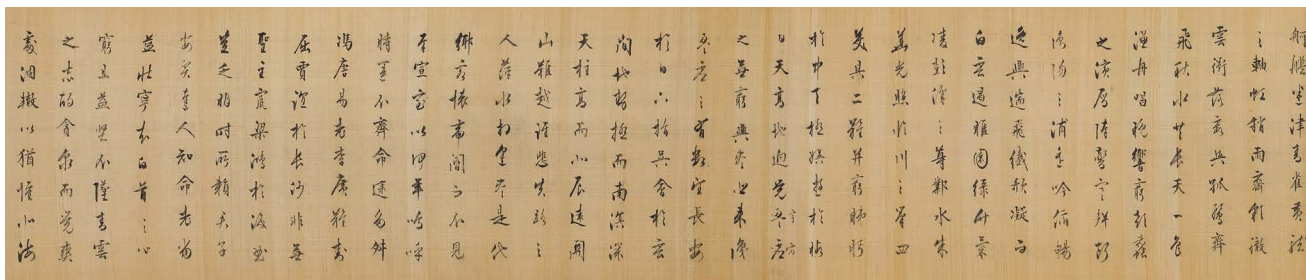 舸艦迷津青雀黃龍
之軸虹銷雨霽彩徹
雲衢落霞與孤鶩齊
飛秋水共長天一色
漁舟唱晚響窮彭蠡
之濱雁陣驚寒聲斷
衡陽之浦遙吟俯暢
逸興遄飛纖歌凝而
白雲遏睢園綠竹氣
凌彭澤之樽鄴水朱
華光照臨川之筆四
美具二難并窮睇眄
於中天極娛遊於暇
日天高地迥覺盈虛宇宙
之無窮興盡悲來識
盈虛之有數望長安
於日下指吳會於雲
間地勢極而南溟深
天柱高而北辰遠關
山難越誰悲失路之
人萍水相逢盡是他
鄉客懷帝閽而不見
奉宣室以何年嗚呼
時運不齊命途多舛
馮唐易老李廣難封
屈賈誼於長沙非無
聖主竄梁鴻於海曲
豈乏明時所賴君子
安貧達人知命老當
益壯寧知白首之心
窮且益堅不墜青雲
之志酌貪泉而覺爽
處涸轍以猶懽北海